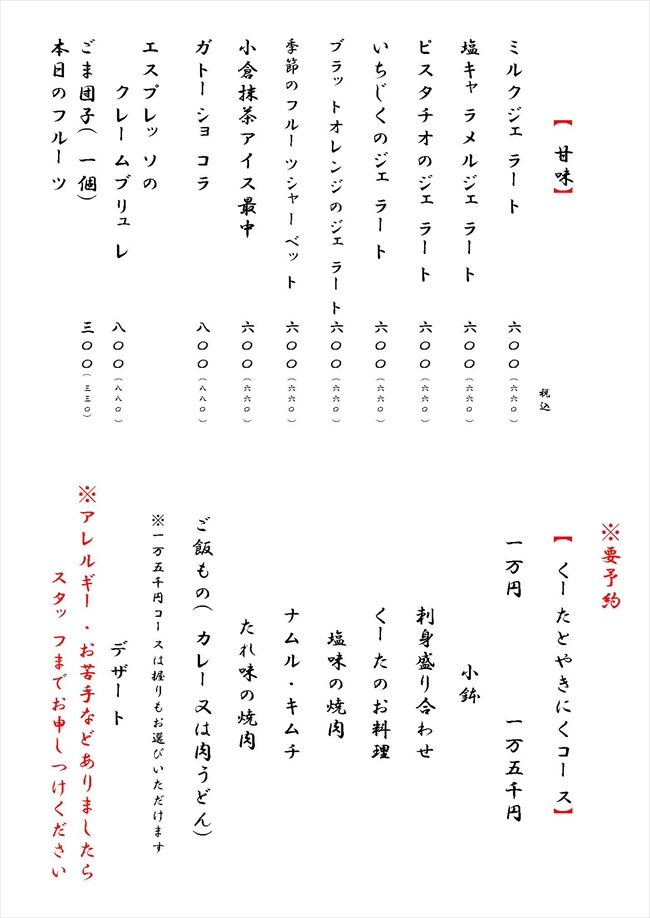 【甘味】
税込
ミルクジェラート 六〇〇(六六〇)
塩キャラメルジェラート 六〇〇(六六〇)
ピスタチオのジェラート 六〇〇(六六〇)
いちじくのジェラート 六〇〇(六六〇)
ブラットオレンジのジェラート 六〇〇(六六〇)
季節のフルーツシャーベット 六〇〇(六六〇)
小倉抹茶アイス最中 六〇〇(六六〇)
ガトーショコラ 八〇〇(八八〇)
エスプレッソの
クレームブリュレ 八〇〇(八八〇)
ごま団子(一個) 三〇〇(三三〇)
本日のフルーツ
※要予約
【くーたとやきにくコース】
一万円 一万五千円
小鉢
刺身盛り合わせ
くーたのお料理
塩味の焼肉
ナムル・キムチ
たれ味の焼肉
ご飯もの(カレー又は肉うどん)
※一万五千円コースは握りもお選びいただけます
デザート
※アレルギー・お苦手などありましたら
スタッフまでお申しつけください